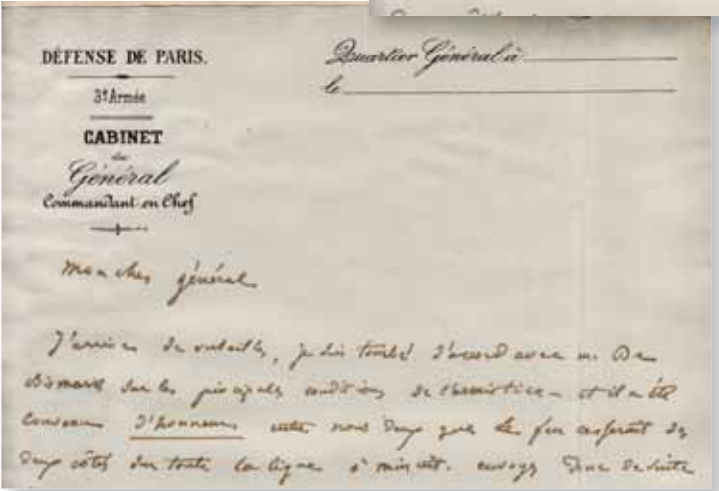 DÉFENSE DE PARIS.
3e Armée
CABINET
du
Général
Commandant en Chef
Quartier Général à
le
Mon cher général
J'arrive de versailles, je suis tombé d'accord avec m. De
Bismarck sur les principales conditions de l'armistice - et il a été
convenu d'honneur entre nous deux que le feu cesserait des
deux côtés sur toute la ligne à minuit. envoyez donc de suite